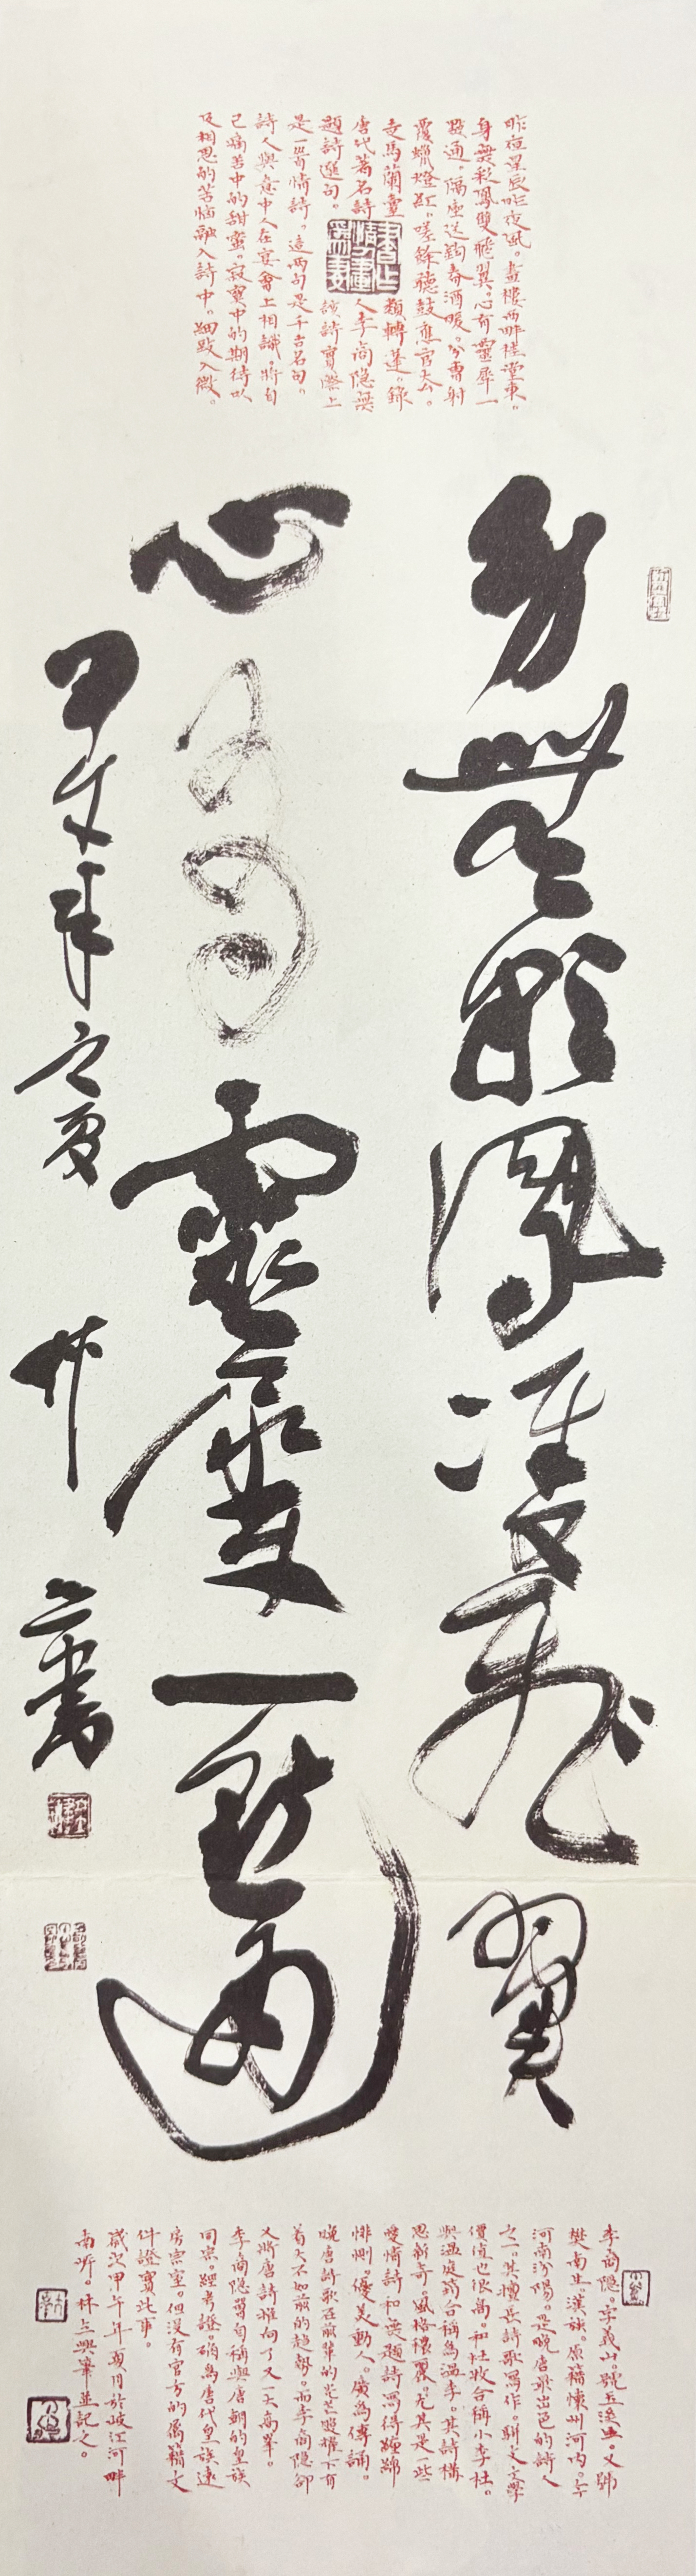 昨夜星辰昨夜風。畫樓西畔桂堂東。
身無彩鳳雙飛翼。心有靈犀一
點通。隔座送鉤春酒暖。分曹射
覆蠟燈紅。嗟餘聽鼓應官去。
走馬蘭臺類轉蓬。錄
唐代著名詩人李商隱無
題詩選句。該詩實際上
是一首情詩。這兩句是千古名句。
詩人與意中人在宴會上相識。將自
己痛苦中的甜蜜。寂寞中的期待以
及相思的苦惱融入詩中。細致入微。
身無彩鳳雙飛翼
心有靈犀一點通
甲午年之夏
林立書
李商隱。字義山。號玉溪生。又號
樊南生。漢族。原籍懷州河內。今
河南沁陽。是晚唐最出色的詩人
之一。其擅長詩歌寫作。駢文文學
價值也很高。和杜牧合稱小李杜。
與溫庭筠合稱為溫李。其詩構
思新奇。風格穠麗。尤其是一些
愛情詩和無題詩寫得纏綿
悱惻。優美動人。廣為傳誦。
晚唐詩歌在前輩的光芒照耀下有
着大不如前的趨勢。而李商隱卻
又將唐詩推向了又一次高峯。
李商隱曾自稱與唐朝的皇族
同宗。經考證。確為唐代皇族遠
房宗室。但沒有官方的屬籍文
件證實此事。
歲次甲午年夏月於岐江河畔
南昕。林立興筆並記之。